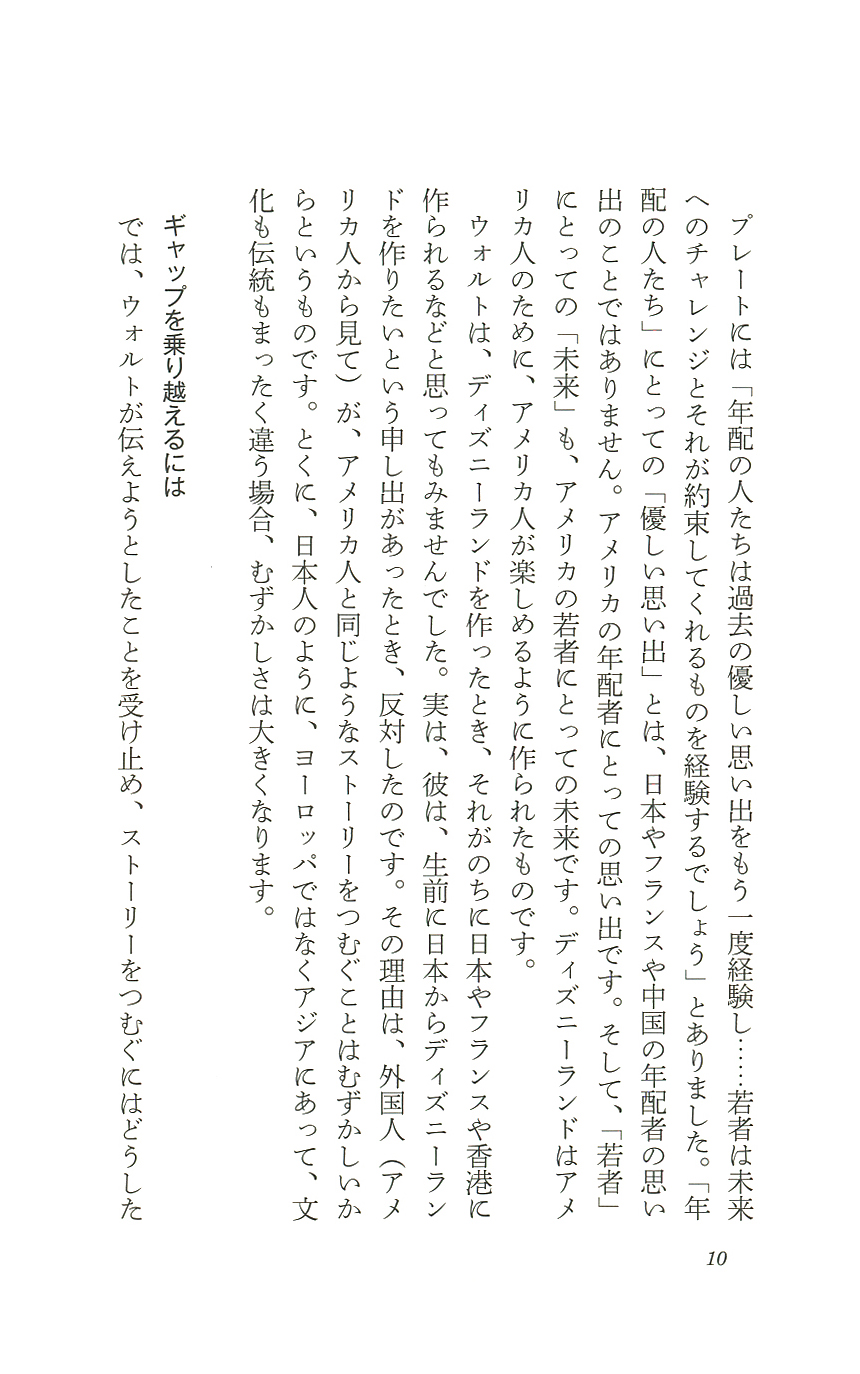 プレートには「年配の人たちは過去の優しい思い出をもう一度経験し……若者は未来
へのチャレンジとそれが約束してくれるものを経験するでしょう」とありました。「年
配の人たち」にとっての「優しい思い出」とは、日本やフランスや中国の年配者の思い
出のことではありません。アメリカの年配者にとっての思い出です。そして、「若者」
にとっての「未来」も、アメリカの若者にとっての未来です。ディズニーランドはアメ
リカ人のために、アメリカ人が楽しめるように作られたものです。
ウォルトは、ディズニーランドを作ったとき、それがのちに日本やフランスや香港に
作られるなどと思ってもみませんでした。実は、彼は、生前に日本からディズニーラン
ドを作りたいという申し出があったとき、反対したのです。その理由は、外国人（アメ
リカ人から見て）が、アメリカ人と同じようなストーリーをつむぐことはむずかしいか
らというものです。とくに、日本人のように、ヨーロッパではなくアジアにあって、文
化も伝統もまったく違う場合、むずかしさは大きくなります。
ギャップを乗り越えるには
では、ウォルトが伝えようとしたことを受け止め、ストーリーをつむぐにはどうした
10